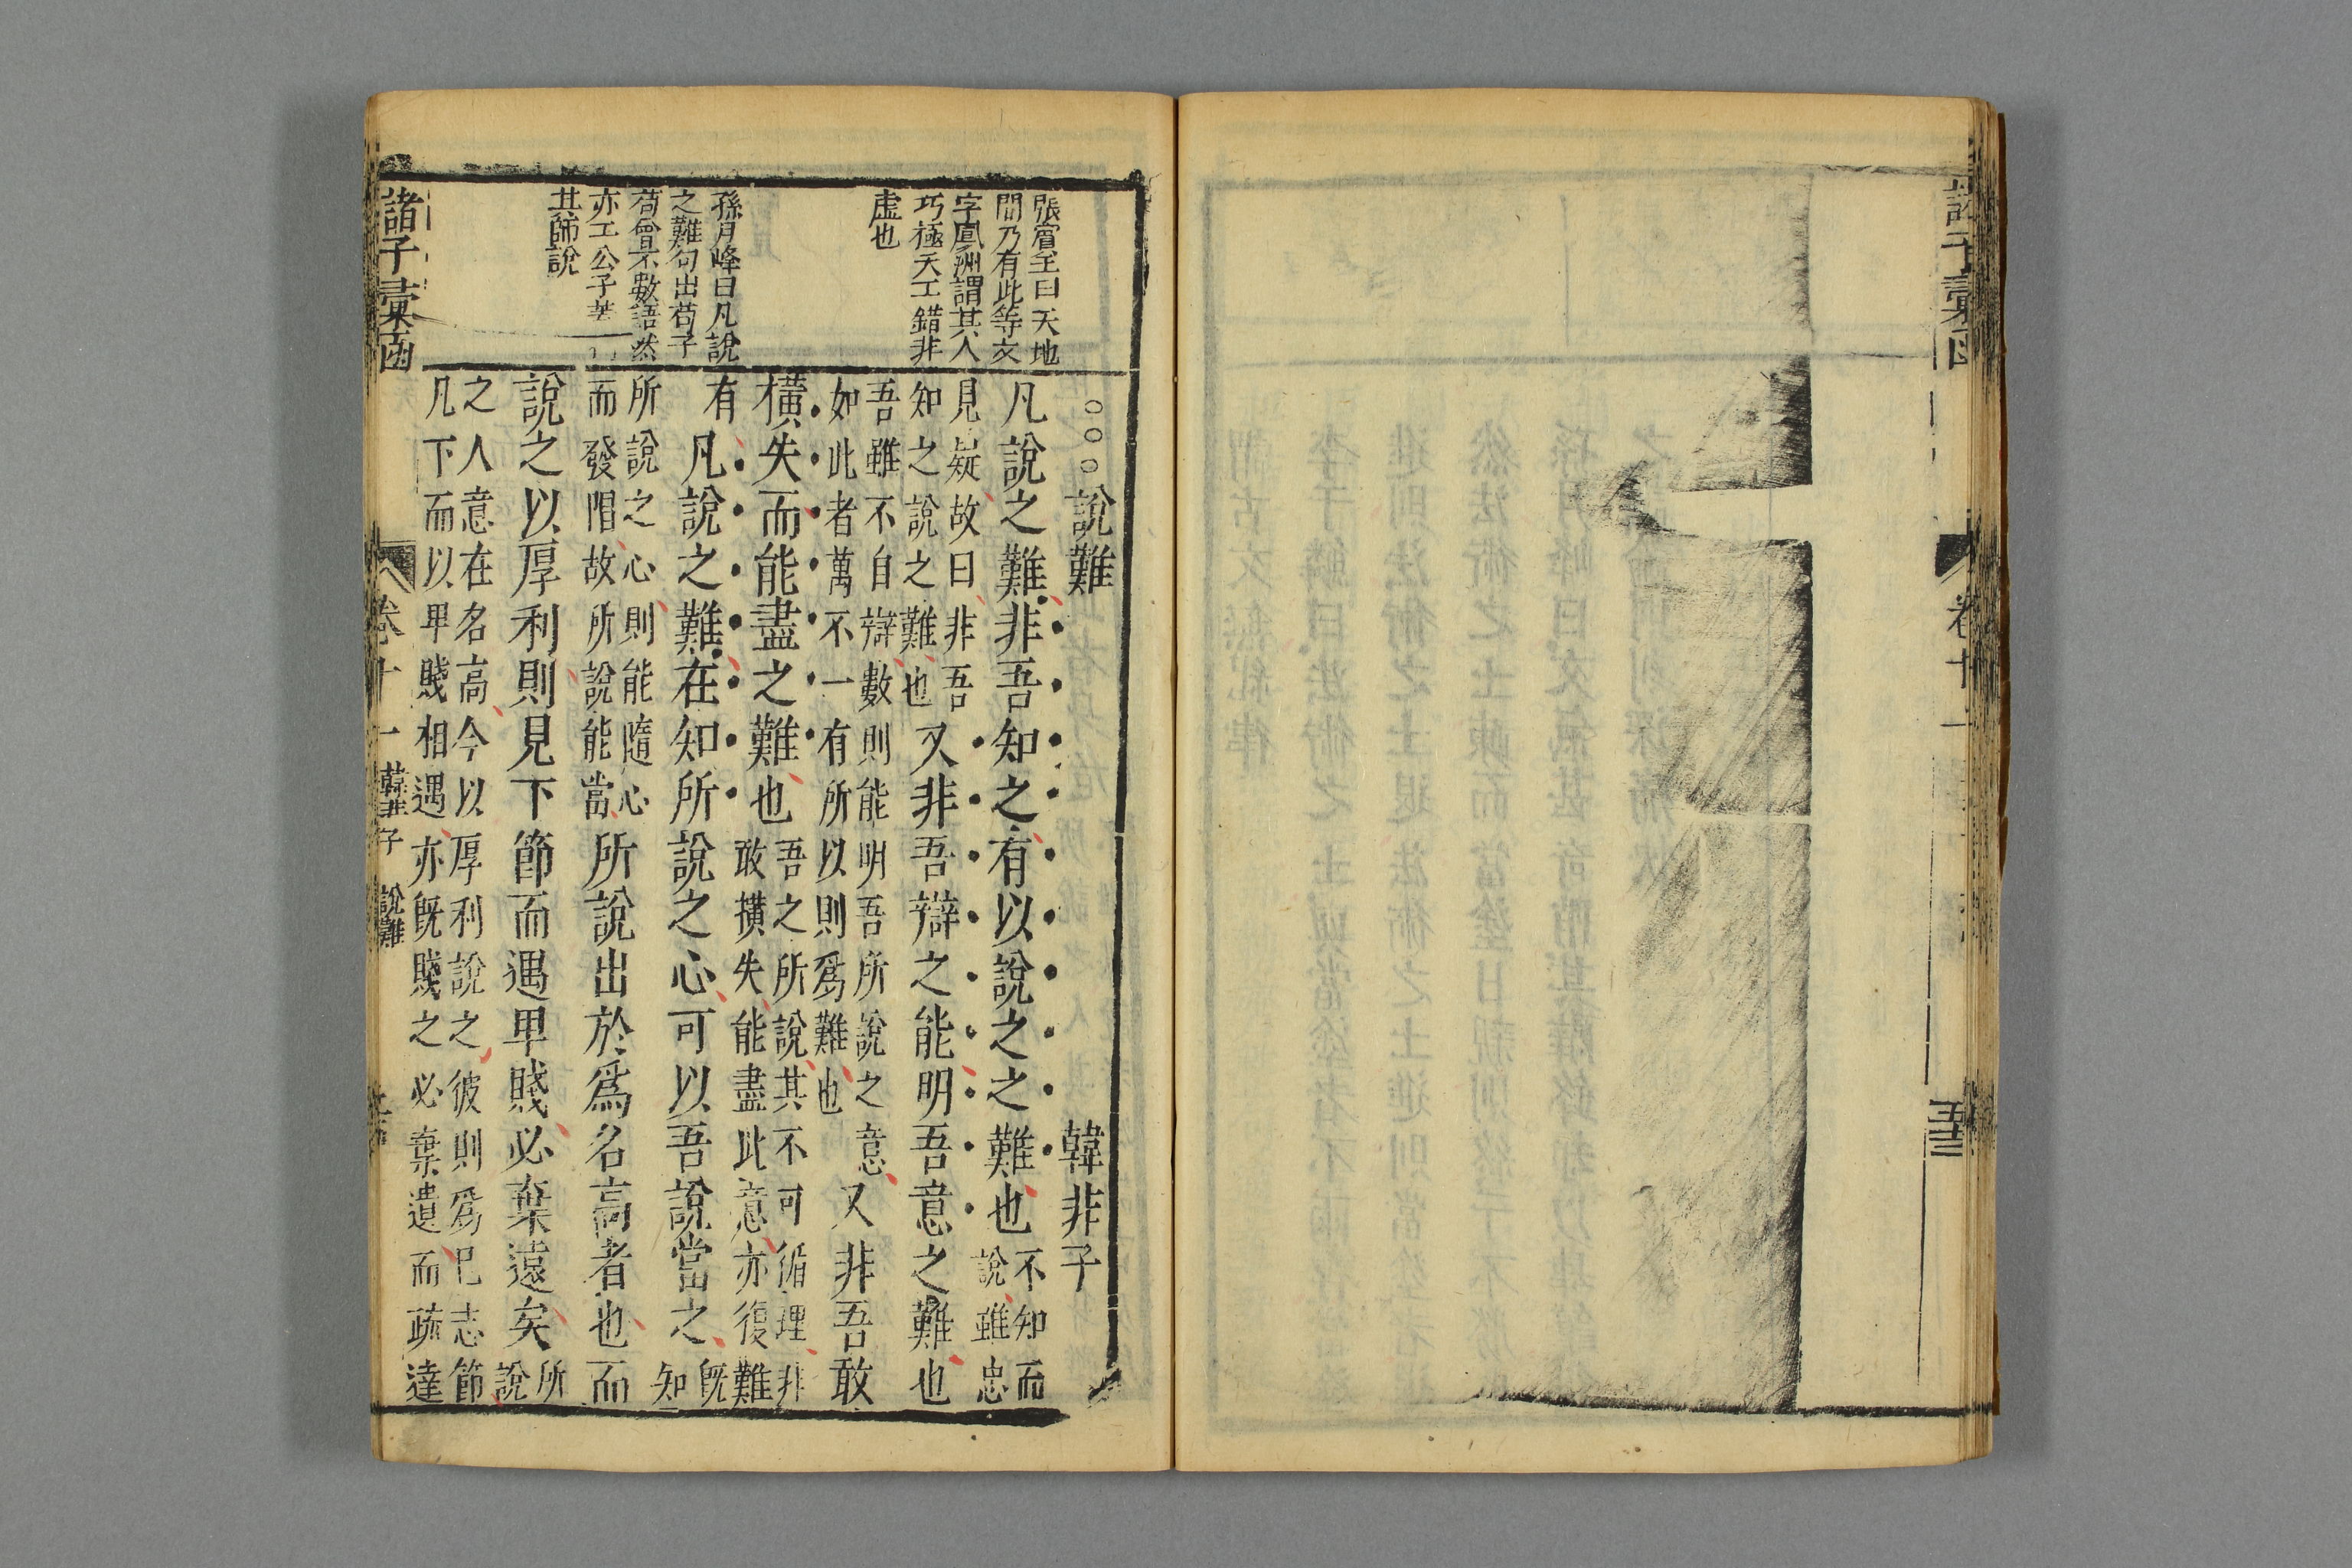 諸子彙函
卷十一
張賓王曰天地
間乃有此等文
字鳳洲謂其人
巧極天工錯非
虛也
孫月峰曰凡說
之難句出荀子
荀曾不數語然
亦工公子
其師說
○○○說難 韓非子
凡說之難非吾知之有以說之之難也不知而
說雖忠
見疑故曰非吾
知之說之難也又非吾辯之能明吾意之難也
吾雖不自辯數則能明吾所說之意
如此者萬不一有所以則爲難也又非吾敢
橫失而能盡之難也吾之所說其不可循理非
敢橫失能盡此意亦復難
有凡說之難在知所說之心可以吾說當之既
知
所說之心則能隨心
而發唱故所說能當所說出於爲名高者也而
說之以厚利則見下節而遇卑賤必棄遠矣所
說
之人意在名高今以厚利說之彼則爲已志節
凡下而以卑賤相遇亦既賤之必棄遺而疏達
諸子彙函
卷十一
韓非子
說難